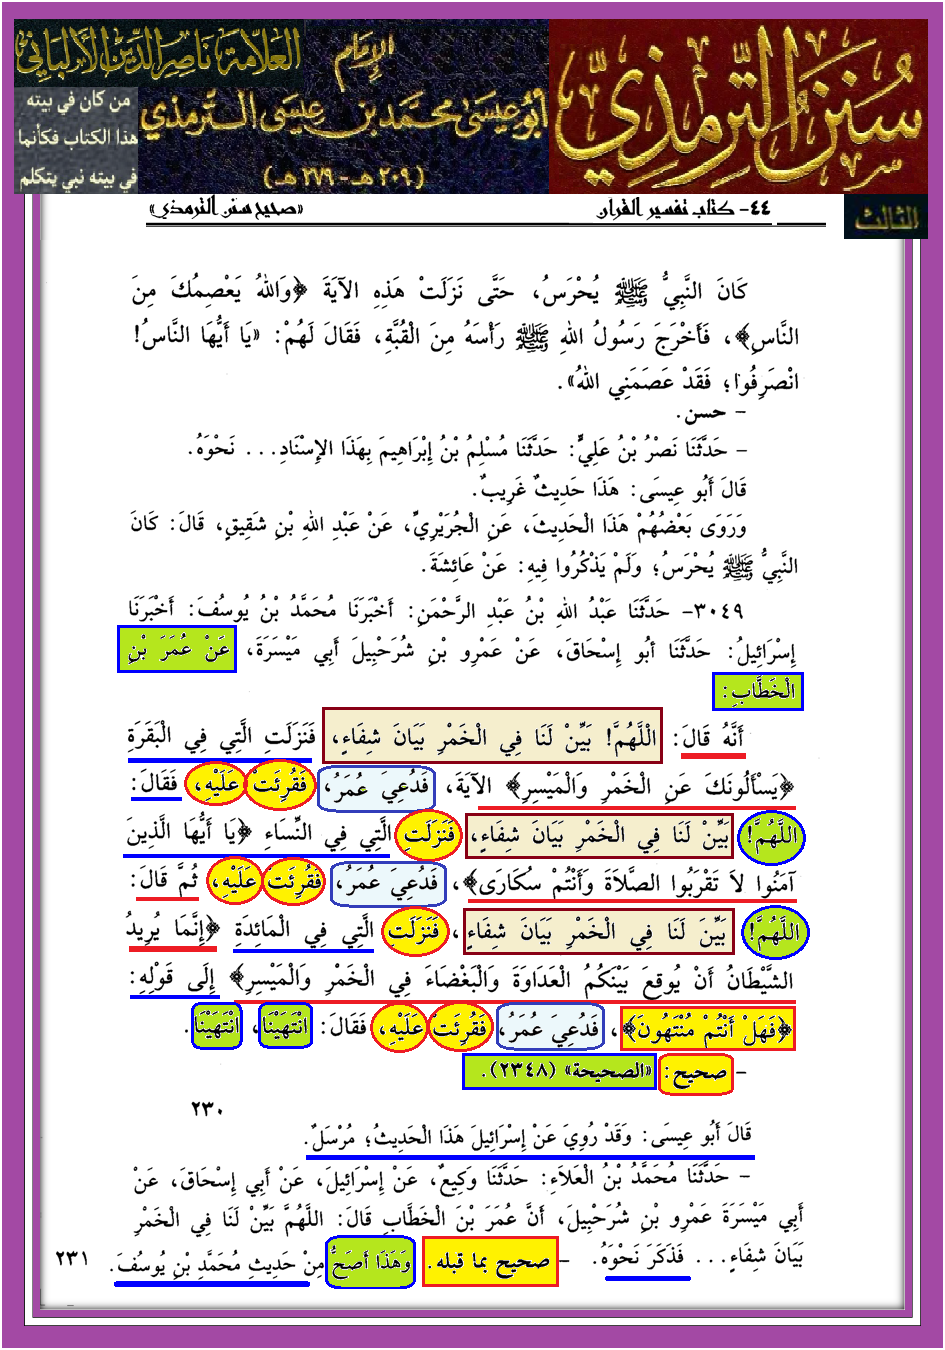 سُنَنُ التِّرمِذِيّ
الإمَام
أبُو عِيسَى محمَّد بن عِيسَى التِّرمذي
(٢٠٩ هـ - ٢٧٩ هـ)
العَلّامَة نَاصِر الدِّين الألبَاني
من كان في بيته
هذا الكتاب فكأنما
في بيته نبي يتكلم
الثالث
٤٤- كتاب تفسير القرآن «صحيح سنن الترمذي»
كَانَ النَّبِيُّ ﷺ يُحْرَسُ، حَتَّى نَزَلَتْ هَذِهِ الآيَةَ ﴿وَاللهُ يَعْصِمُكَ مِنَ
النَّاسِ﴾، فَأَخْرَجَ رَسُولُ اللهِ ﷺ رَأْسَهُ مِنَ الْقُبَّةِ، فَقَالَ لَهُمْ: «يَا أَيُّهَا النَّاسُ!
انْصَرِفُوا؛ فَقَدْ عَصَمَنِي اللهُ».
- حسن.
- حَدَّثَنَا نَصْرُ بْنُ عَلِيٍّ: حَدَّثَنَا مُسْلِمُ بْنُ إِبْرَاهِيمَ بِهَذَا الإِسْنَادِ... نَحْوَهُ.
قَالَ أَبُو عِيسَى: هَذَا حَدِيثٌ غَرِيبٌ.
وَرَوَى بَعْضُهُمْ هَذَا الْحَدِيثَ، عَنِ الْجُرَيْرِيِّ، عَنْ عَبْدِ اللهِ بْنِ شَقِيقٍ، قَالَ: كَانَ
النَّبِيُّ ﷺ يُحْرَسُ؛ وَلَمْ يَذْكُرُوا فِيهِ: عَنْ عَائِشَةَ.
٣٠٤٩- حَدَّثَنَا عَبْدُ اللهِ بْنُ عَبْدِ الرَّحْمَنِ: أَخْبَرَنَا مُحَمَّدُ بْنُ يُوسُفَ: أَخْبَرَنَا
إِسْرَائِيلُ: حَدَّثَنَا أَبُو إِسْحَاقَ، عَنْ عَمْرِو بْنِ شُرَحْبِيلَ أَبِي مَيْسَرَةَ، عَنْ عُمَرَ بْنِ
الْخَطَّابِ:
أَنَّهُ قَالَ: اللَّهُمَّ! بَيِّنْ لَنَا فِي الْخَمْرِ بَيَانَ شِفَاءٍ، فَنَزَلَتِ الَّتِي فِي الْبَقَرَةِ
﴿يَسْأَلُونَكَ عَنِ الْخَمْرِ وَالْمَيْسِرِ﴾ الآيَةَ، فَدُعِيَ عُمَرُ، فَقُرِئَتْ عَلَيْهِ، فَقَالَ:
اللَّهُمَّ! بَيِّنْ لَنَا فِي الْخَمْرِ بَيَانَ شِفَاءٍ، فَنَزَلَتِ الَّتِي فِي النِّسَاءِ ﴿يَا أَيُّهَا الَّذِينَ
آمَنُوا لاَ تَقْرَبُوا الصَّلاَةَ وَأَنْتُمْ سُكَارَى﴾، فَدُعِيَ عُمَرُ، فَقُرِئَتْ عَلَيْهِ، ثُمَّ قَالَ:
اللَّهُمَّ! بَيِّنَ لَنَا فِي الْخَمْرِ بَيَانَ شِفَاءٍ، فَنَزَلَتِ الَّتِي فِي الْمَائِدَةِ ﴿إِنَّمَا يُرِيدُ
الشَّيْطَانُ أَنْ يُوقِعَ بَيْنَكُمُ الْعَدَاوَةَ وَالْبَغْضَاءَ فِي الْخَمْرِ وَالْمَيْسِرِ﴾ إِلَى قَوْلِهِ:
﴿فَهَلْ أَنْتُمْ مُنْتَهُونَ﴾، فَدُعِيَ عُمَرُ، فَقُرِئَتْ عَلَيْهِ، فَقَالَ: انْتَهَيْنَا، انْتَهَيْنَا.
- صحيح: «الصحيحة» (٢٣٤٨).
٢٣٠
قَالَ أَبُو عِيسَى: وَقَدْ رُوِيَ عَنْ إِسْرَائِيلَ هَذَا الْحَدِيثُ؛ مُرْسَلٌ.
- حَدَّثَنَا مُحَمَّدُ بْنُ الْعَلاَءِ: حَدَّثَنَا وَكِيعٌ، عَنْ إِسْرَائِيلَ، عَنْ أَبِي إِسْحَاقَ، عَنْ
أَبِي مَيْسَرَةَ عَمْرِو بْنِ شُرَحْبِيلَ، أَنَّ عُمَرَ بْنَ الْخَطَّابِ قَالَ: اللَّهُمَّ بَيِّنْ لَنَا فِي الْخَمْرِ
بَيَانَ شِفَاءٍ... فَذَكَرَ نَحْوَهُ. - صحيح بما قبله. وَهَذَا أَصَحُّ مِنْ حَدِيثِ مُحَمَّدِ بْنِ يُوسُفَ. ٢٣١